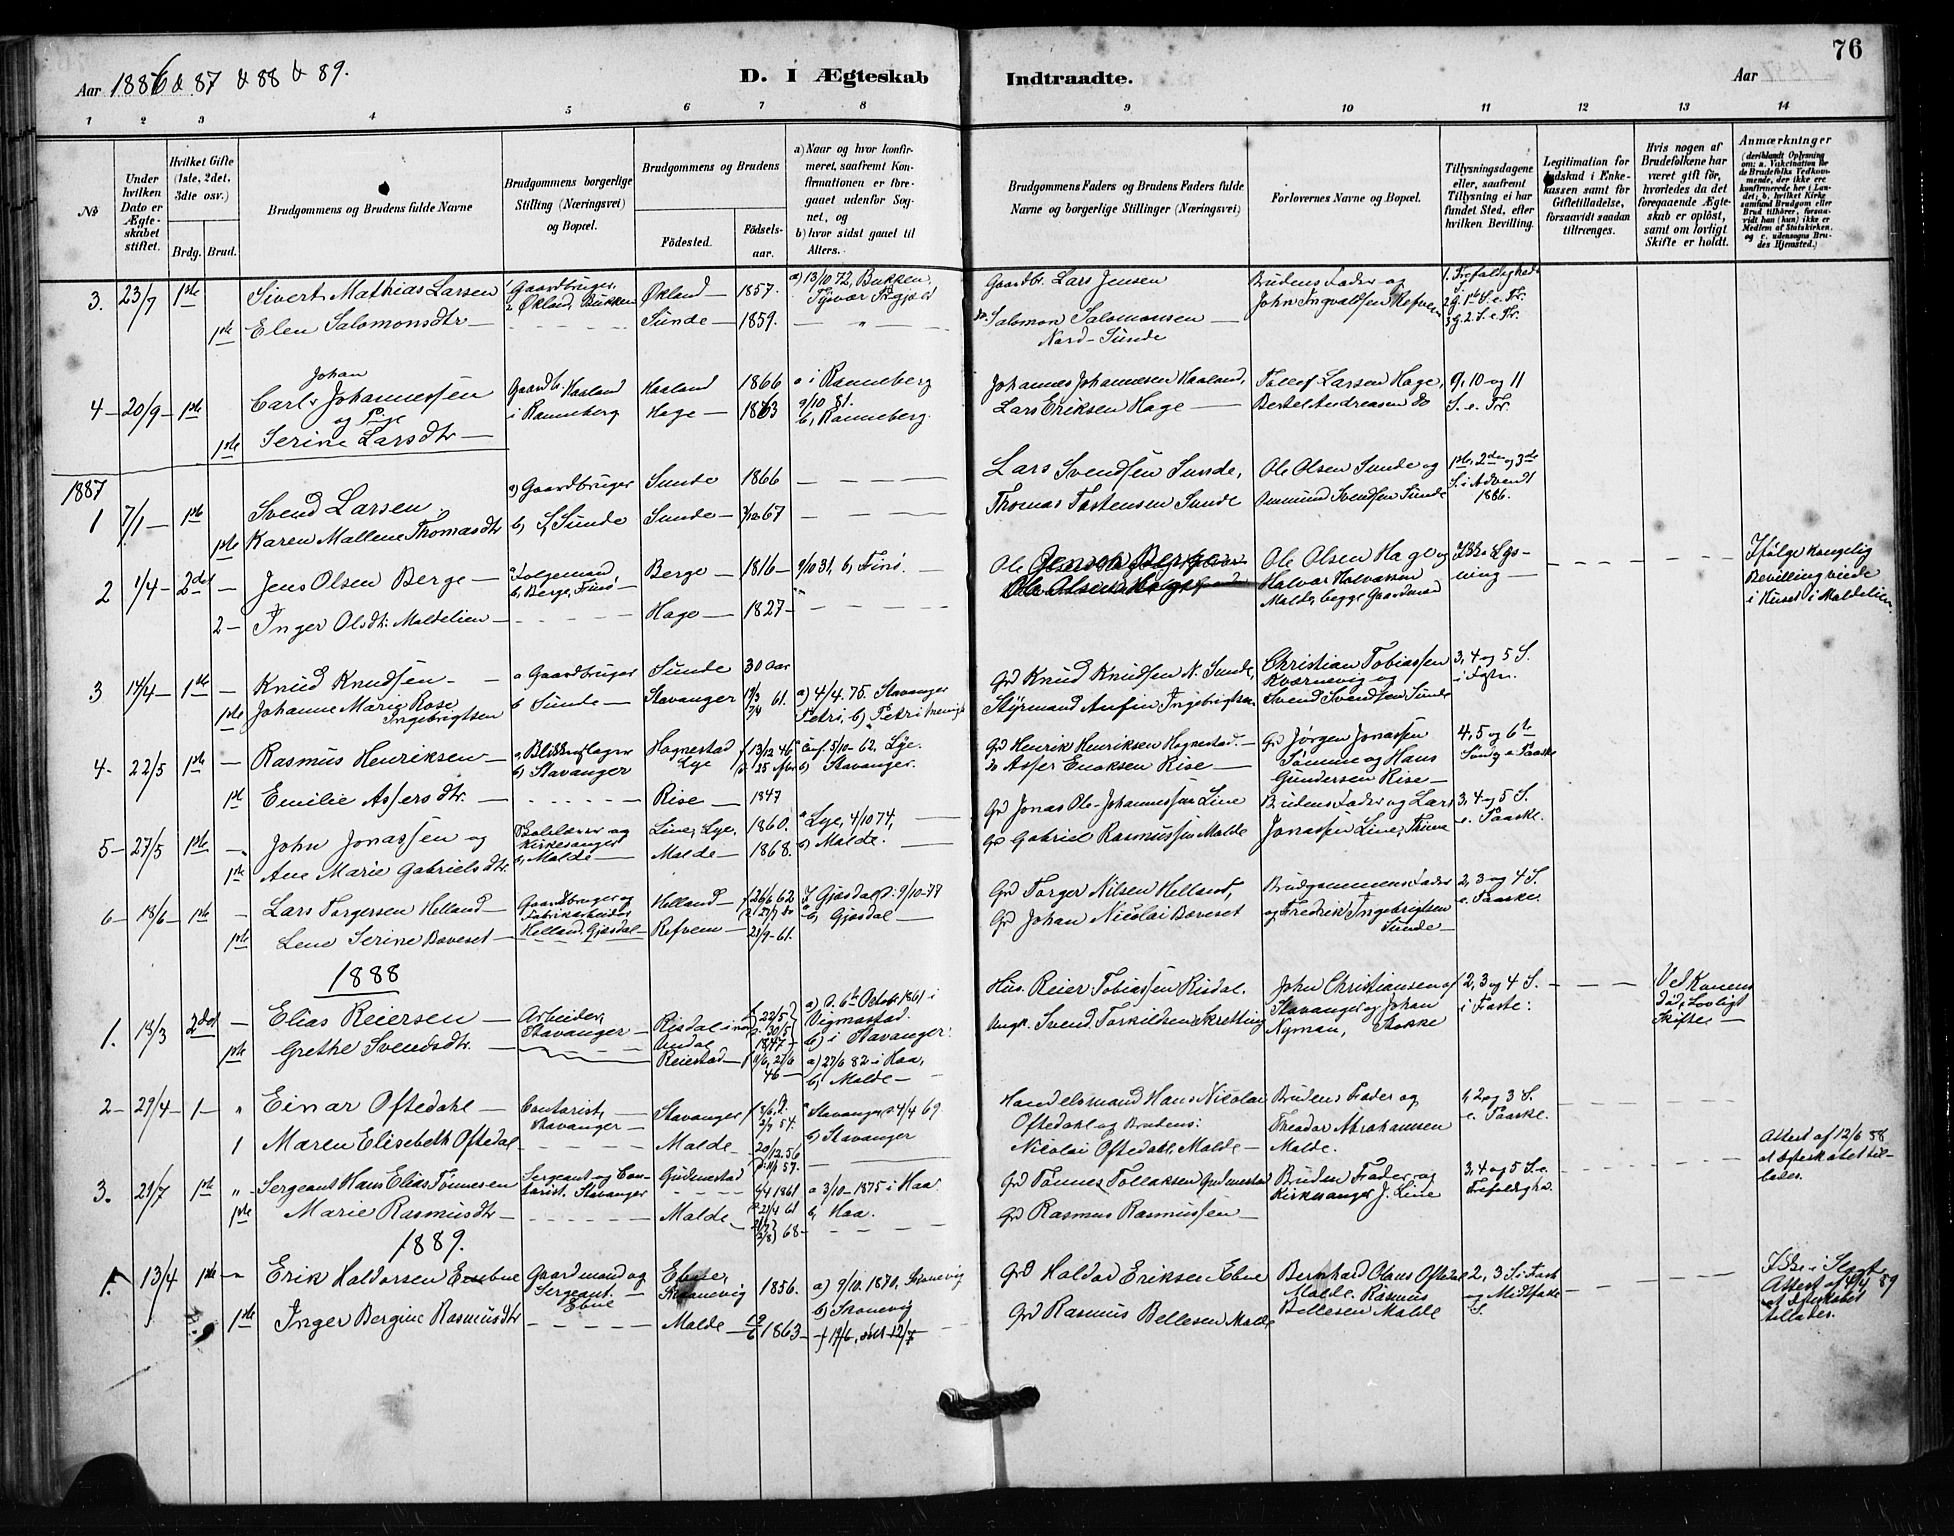 76
Aar 1886 & 87 & 88 & 89.
D. I Ægteskab Indtraadte.
Aar
1 2 3 4 5 6 7 8 9 10 11 12 13 14
No
Under hvilken Dato er Ægteskabet stiftet.
Hvilket Gifte (1ste, 2det, 3die osv.)
Brdg. Brud.
Brudgommens og Brudens fulde Navne
Brudgommens borgerlige Stilling (Næringsvei) og Bopæl.
Brudgommens og Brudens
Fødested.
Fødselsaar.
a) Naar og hvor konfirmeret, saafremt Konfirmationen er foregaaet udenfor Sognet, og
b) hvor sidst gaaet til Alters.
Brudgommens Faders og Brudens Faders fulde Navne og borgerlige Stillinger (Næringsvei)
Forlovernes Navne og Bopæl.
Tillysningsdagene eller, saafremt Tillysning ei har fundet Sted, efter hvilken Bevilling.
Legitimation for Indskud i Enkekassen samt for Giftetilladelse, forsaavidt saadan tiltrænges.
Hvis nogen af Brudefolkene har været gift før, hvorledes da det foregaaende Ægteskab er opløst, samt om lovligt Skifte er holdt.
Anmærkninger
(deriblandt Oplysning om: a. Vakcination for de Brudefolks Vedkommende, der ikke ere konfirmerede her i Landet; b. hvilket Kirkesamfund Brudgom eller Brud tilhører, forsaavidt han (hun) ikke er Medlem af Statskirken, og c. udensogns Brudes Hjemsted.)
3. 23/7 1ste Sivert Mathias Larsen Gaardbruger, Økland, Bukken Økland 1857. a) 13/10 72, Bukken, Tysvær Gaardbr. Lars Jensen Brudens Fader og John Ingvaldsen Refvem
1ste Elen Salomonsdtr Sunde 1859. Salomon Salomonsen Nord-Sunde
4 20/9 1ste Carl Johan Johannessen og Pige Gaardb. Haaland i Ranneberg Haaland 1866 a i Ranneberg 9/10 81. b, Ranneberg. Johannes Johannesen Haaland, Tollef Larsen Hage, 9, 10 og 11 S. e. Tr.
1ste Serine Larsdtr Hage 1863 Lars Eriksen Hage Bertel Andreasen do
1887
1 7/1 1ste Svend Larsen a) Gaardbruger Sunde 1866 Lars Svendsen Sunde, Ole Olsen Sunde og 1ste, 2den og 3de S. i Advendt 1886.
1ste Karen Mallene Thomasdtr b, Sunde Sunde 67 Thomas Tostensen Sunde Ammund Svendsen Sunde
2 1/4 2det Jens Olsen Berge Folgemand b, Berge, Finø Berge 1816 9/10 31, b, Finø. Ole Ole Olsen Hage og Halvor Halvorsen Malde, begge Gaardmænd Ikke Lysning Ifølge kongelig Bevilling viede i Huset i Maldelien.
2 Inger Olsdtr. Maldelien Hage 1827
3 14/4 1ste Knud Knudsen a Gaardbruger Sunde 30 Aar Grd Knud Knudsen N. Sunde, Christian Tobiassen Kværnevig og 3, 4 og 5 S. i Faste.
1ste Johanne Marie Rose Ingebrigtsen b Sunde Stavanger 61. a) 4/4. 75. Stavanger Petri, b) Petri Styrmand Anfin Ingebrigtsen Svend Svendsen Sunde
4 22/5 1ste Rasmus Henriksen a, Blikkenslager b, Stavanger Hognestad Lye 13/12 46 Conf. 5/10 62, Lye. b) Stavanger. Grd Henrik Henriksen Hognestad. Grd Jørgen Jonassen Sømme og Hans Gundersen Rise 4, 5 og 6te Søndg e Paaske
1ste Emilie Assersdtr. Rise 1847 do Asser Enoksen Rise
5 27/5 1ste John Jonassen og Skolelærer og Kirkesanger b, Malde Line, Lye, 1860. a Lye, 4/10 74, b) Malde. Grd Jonas Ole Johannessen Line Brudens Fader og Lars Jonassen Line, Thime 3, 4 og 5 S. e. Paaske.
1ste Ane Marie Gabrielsdtr. Malde 1868. Grd Gabriel Rasmussen Malde
6 18/6 1ste Lars Torgersen Helland Gaardbruger og Fabrikarbeider Helland, Gjesdal Helland 26/6 62 Gjesdal 9/10-79 b, Gjesdal Grd Torger Nilsen Helland, Brudgommens Fader og Fredrik Ingebrigtsen Sunde 2, 3 og 4 S. e. Paaske.
1ste Lene Serine Boveset Refvem 23/9 61. Grd Johan Nicolai Boveset
1888
1. 18/3 2det Elias Reiersen Arbeider, Stavanger Risdal i nor Undal 22/5 30/5 1847 a) d. 6te October 1861 i Vigmostad. b) i Stavanger: Hus. Reier Tobiassen Risdal. John Christiansen af Stavanger og Johan Nyman, Stokke 2, 3 og 4 S. i Faste: Ved Konens Død, Lovligt Skifte
1ste Grethe Svendsdtr. Reiestad 46 a) 27/6 82 i Haa, b, Malde Svend Torkildsen Skretting
2 29/4 1 Einar Oftedahl Contorist, Stavanger Stavanger 54. Stavanger 4/4 69. b) Stavanger Handelsmand Hans Nicolai Oftedahl og Brudens: Brudens Fader og Theodor Abrahamsen Malde. 1, 2 og 3 S. e. Paaske.
1 Maren Elisebeth Oftedal Malde 20/12 56 57. Nicolai Oftedahl, Malde
3. 29/7 1ste Sergeant Hans Elias Tønnesen Sergeant og Contorist, Stavanger Gudmestad 1861 a 3/10 1875 i Haa b, Haa. Grd Tønnes Tollaksen Gudmestad Brudens Fader og Kirkesanger J. Line 3, 4 og 5 S. e. Trefoldighed. Attest af 12/6 88 at Ægteskabet tillades.
1ste Marie Rasmusdtr Malde 68 Grd Rasmus Rasmussen
1889.
1. 13/4 1ste Erik Haldorsen Ebne Gaardmand og Sergeant. Ebne Ebne, Skonevig 1856. a) 9/10. 1870, Skonevig b) Skonevig Grd Haldor Eriksen Ebne Bernhard Olaus Oftedal Malde. Rasmus Bellesen Malde 2, 3 S. i Fast og Midtfaste S. Ikke i Slægt. Attest af 4/4 89 at Ægteskabet tillades.
1ste Inger Bergine Rasmusdtr Malde 1863 Grd Rasmus Bellesen Malde